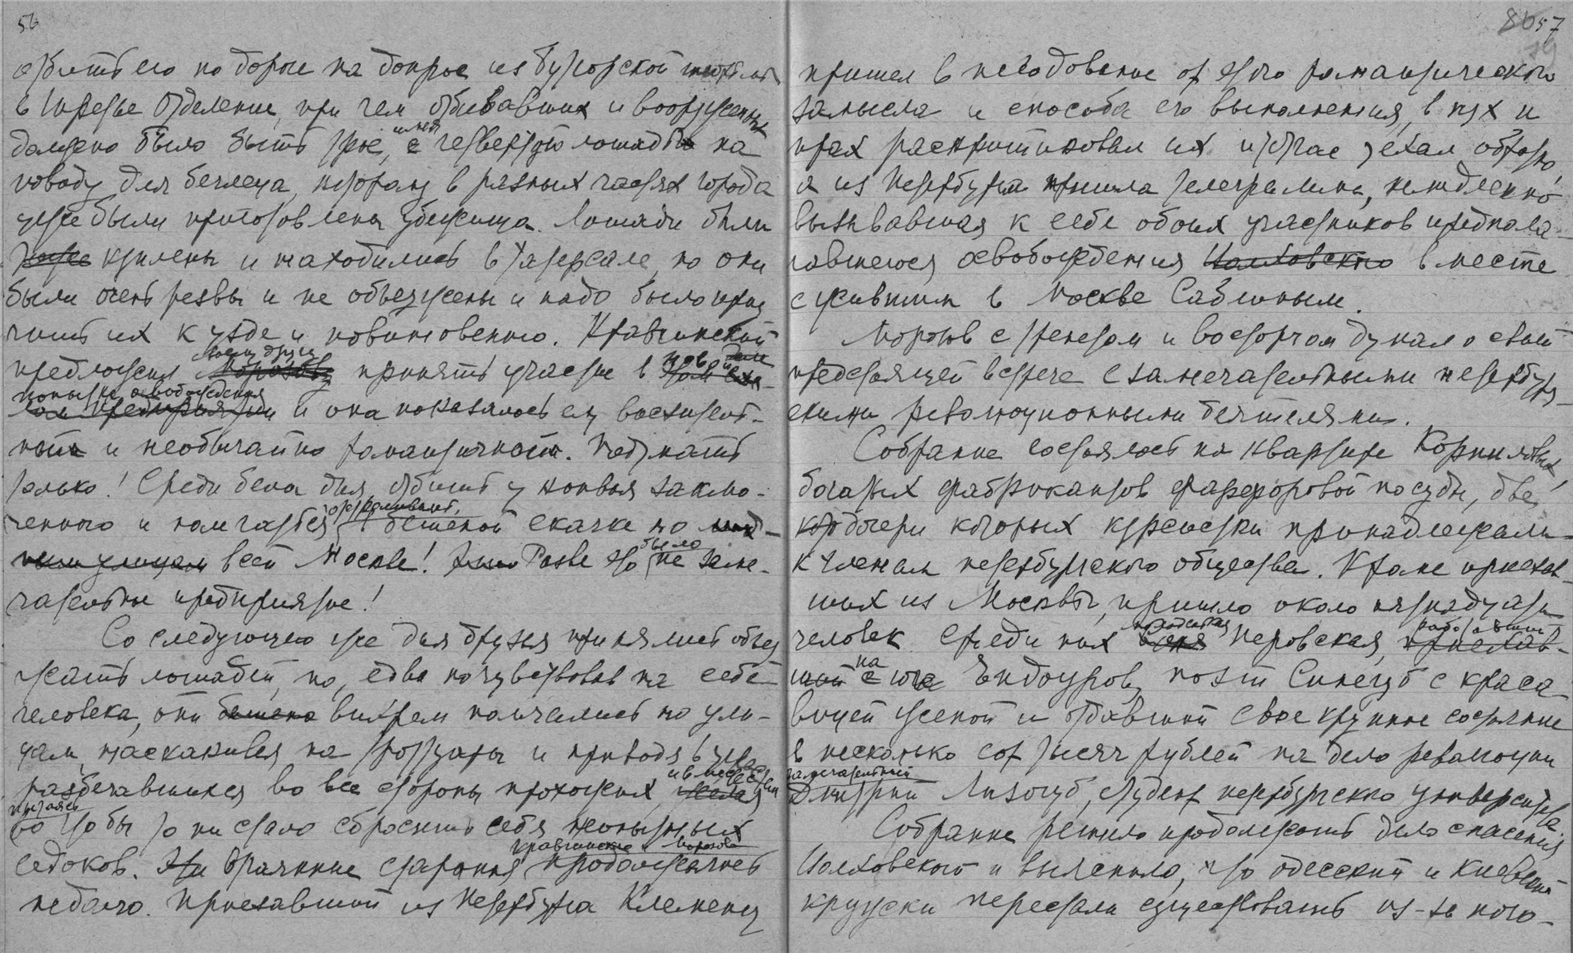 56
отбить его по дороге на допрос из Бутырской
в Третье Отделение, при чем отбивавших и вооруженных
должно было быть трое, с четвертой лошадью на
поводу для беглеца, которому в разных частях города
уже были приготовлены убежища. Лошади были
куплены и находились в Татерсале, но они
были очень резвы и не объезжены и надо было приу
чить их к узде и повиновению. Кравчинский
моему другу
предложил Морозову принять участие в
попытке освобождения
и она показалось ему восхитель-
ной и необычайно романтичной. Подумать
только! Среди бела дня отбить у конвоя заклю-
ченного и помчаться бешеной скачке по
всей Москве! Разве это было не заме-
чательное предприятие!
Со следующего же дня друзья принялись объез
жать лошадей, но, едва почувствовав на себе
человека, они бешено вихрем помчались по ули-
цам, наскакивая на тротуары и приводя в ужас
разбегавшихся во все стороны прохожих,
пытаясь
во что бы то ни стало сбросить себя
Кравчинского и Морозова
седоков. старания продолжались
недолго. Приехавший из Петербурга Клеменц
57
пришел в негодование от этого романтического
замысла и способа его выполнения, в пух и
прах раскритиковал их и тотчас уехал обратно,
а из Петербурга пришла телеграмма, немедленно
вызвавшая к себе обоих участников предпола-
гавшегося освобождения Волховского вместе
с жившим в Москве Саблиным.
Морозов с трепетом и восторгом думал о своей
предстоящей встрече с замечательными петербург-
скими революционными деятелями.
Собрание состоялось на квартире Корниловых,
богатых фабрикантов фарфоровой посуды, две
дочери которых курсистки принадлежали
к членам петербургского общества. Кроме приехав-
ших из Москвы, пришло около пятнадцати
человек. Среди них Перовская,
на юге Эндоуров, поэт Синегуб с краса-
вицей женой и отдавший свое крупное состояние
в несколько сот тысяч рублей на дело революции
замечательный
Дмитрий Лизогуб, студент петербургского университета.
Собрание решило продолжать дело спасения
Волховского и выяснило, что одесский и киевский
кружки перестали существовать из-за пого-